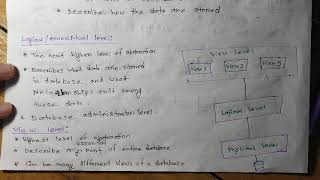 * Describe how the data are stored
Logical/conceptual level:
* The next higher level of abstraction
* Describes what data are stored
in database and what
relationships exist among
those data.
* Database administrator level.
View level:
* Highest level of abstraction
* Describe only part of entire database
* Can be many different views of a database
View level
View 1
View 2
View 3
Logical level
Physical level